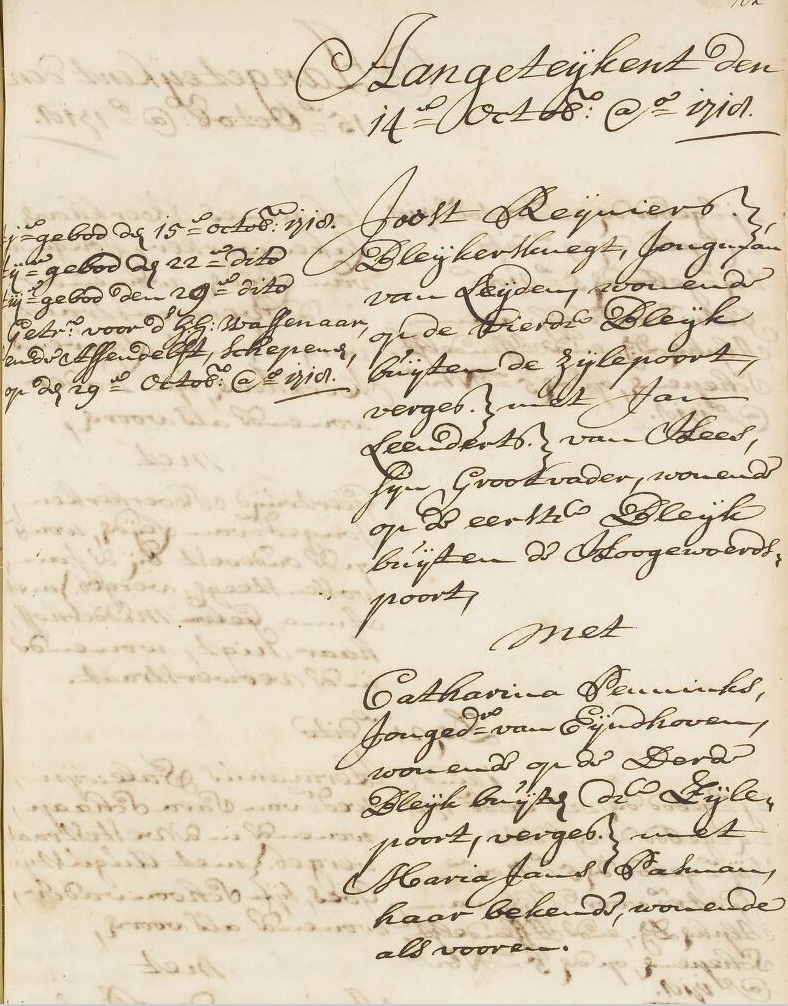 Aangeteijkent den
14.en Octob:r A:o 1718.
j.e gebod den 15.e octob:r 1718.
ij.e gebod den 22.e dito
iij.e gebod den 29.e dito
Getr.t voor d' hh: Wassenaar,
ende Assendelft, Schepens,
op den 29.e Octob:r A:o 1718.
Joost Reijniers.
Bleijkersknegt, Jongman
van Leijden, wonende
op de vierde Bleijk
buijten de Zijlepoort,
verges. met Jan
Leenderts. van Hees,
sijn Grootvader, wonende
op de eerste Bleijk
buijten de Hoogewoerds-
poort,
met
Catharina Penninks,
Jonged.e van Eijndhoven,
wonende op de Derde
Bleijk buijten de Zijle-
poort, verges. met
Maria Jans
haar bekende, wonende
als vooren.